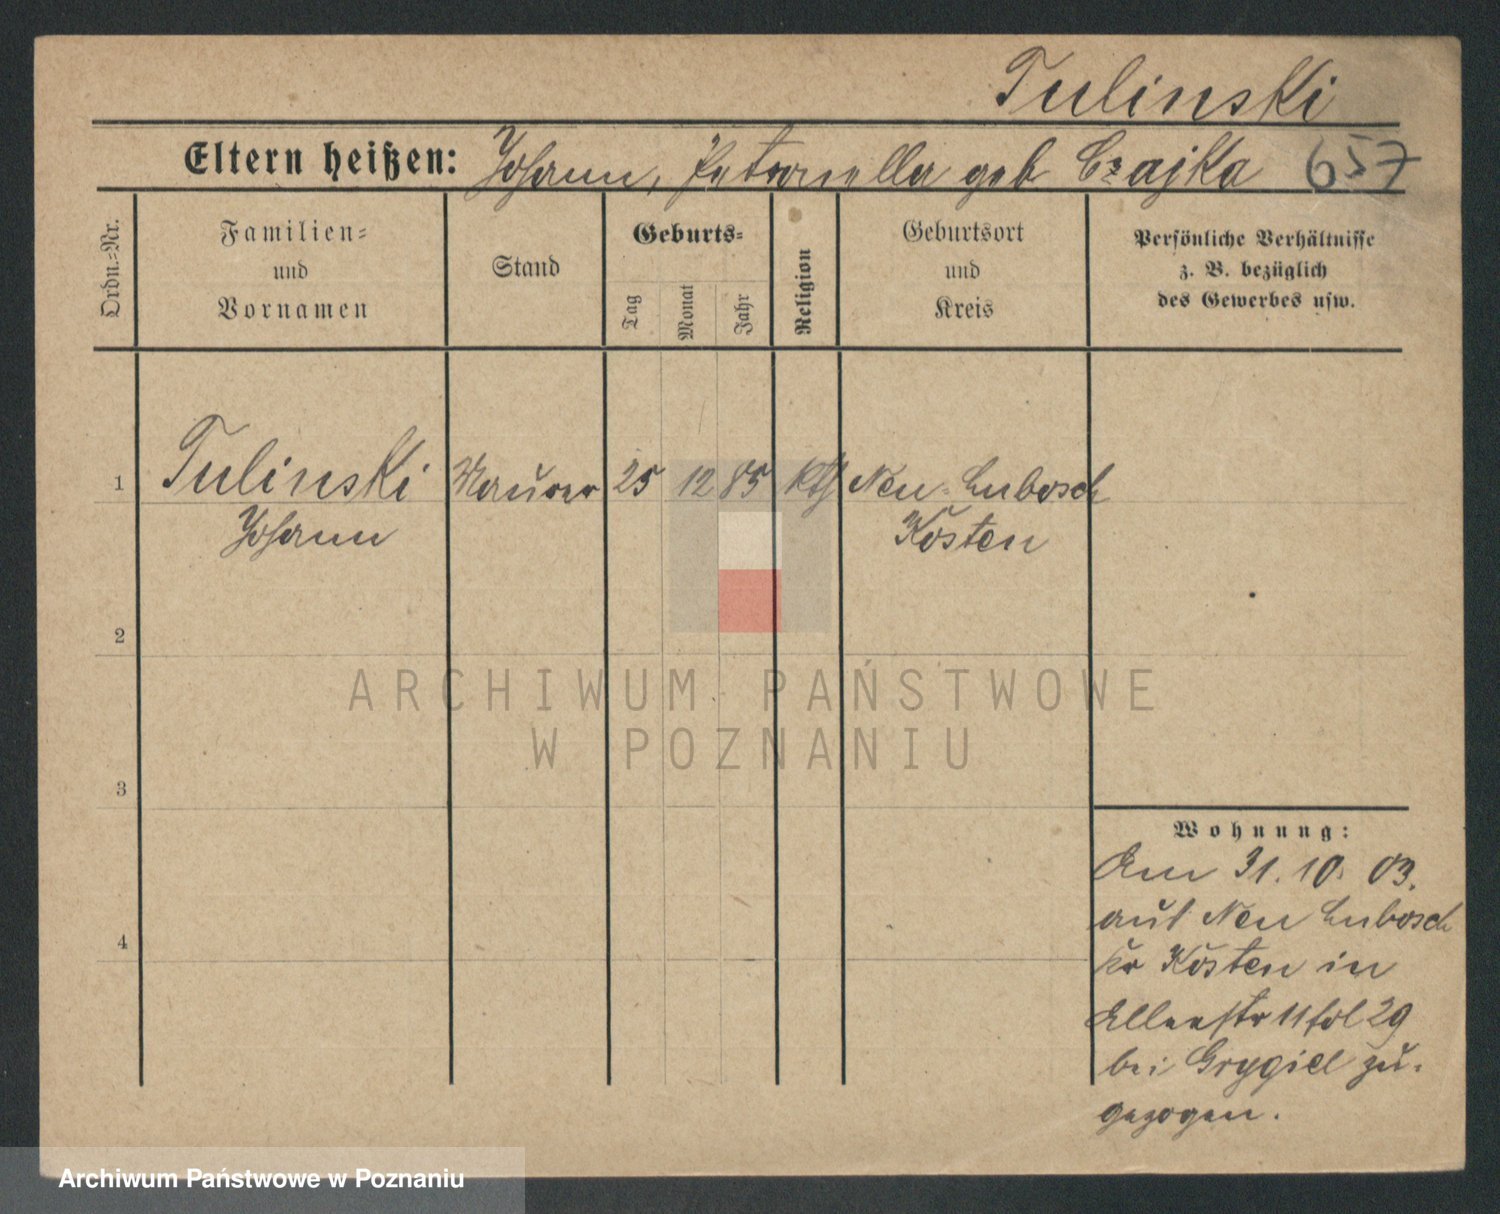 Tulinski
Eltern heißen: Johann, Petronella geb Czajka 657
Ordn.=Nr.
Familien=
und
Vornamen
Stand
Geburts=
Tag
Monat
Jahr
Religion
Geburtsort
und
Kreis
Persönliche Verhältnisse
z. B. bezüglich
des Gewerbes usw.
1 Tulinski Maurer 25 12 85 kth Neu-Lubosch
Johann Kosten
2
3
4
Wohnung:
Am 31.10.03.
aus Neu Lubosch
Kr Kosten in
11 fol 29
bei Grygiel zu-
gezogen.
ARCHIWUM PAŃSTWOWE
W POZNANIU
Archiwum Państwowe w Poznaniu